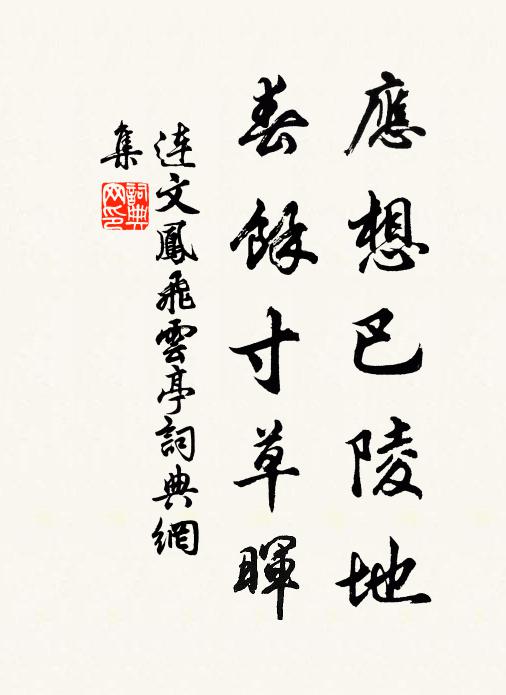 應想巴陵地
春餘寸草暉
連文鳳飛雲亭詞典網
集
詞典
网印